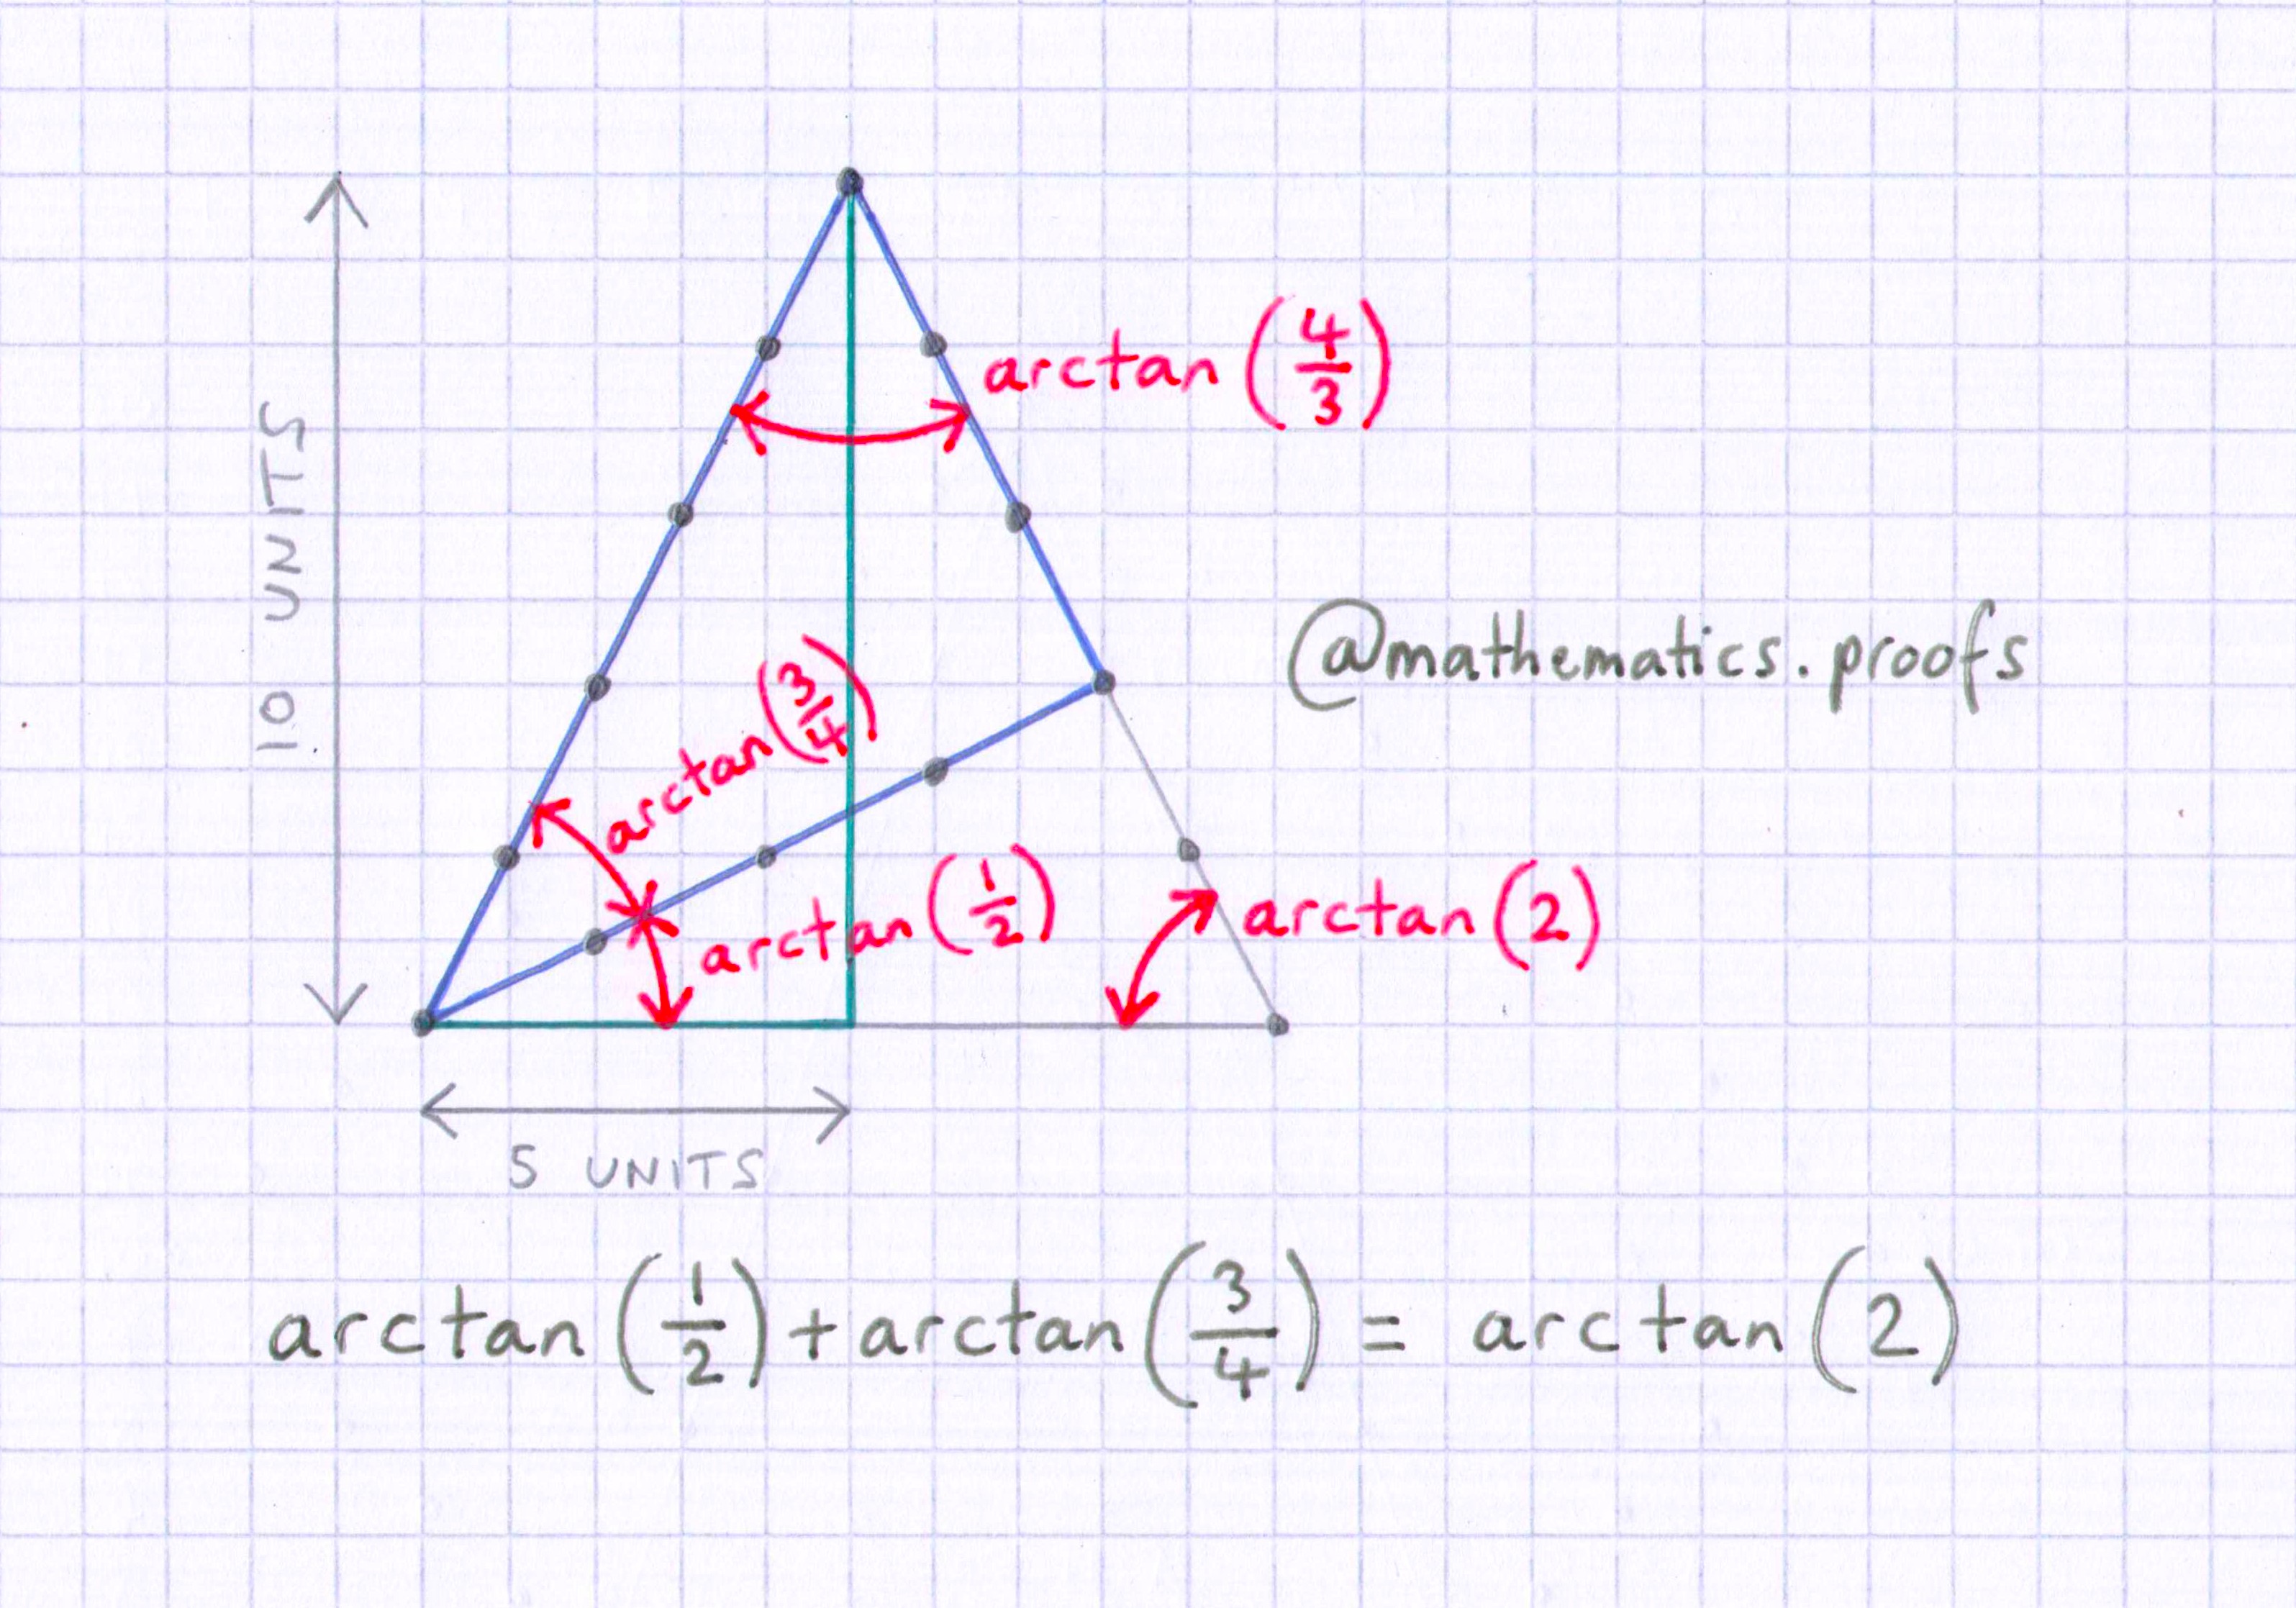 arctan (4/3)
10 UNITS
@mathematics.proofs
arctan (3/4)
arctan (1/2)
arctan (2)
5 UNITS
arctan (1/2) + arctan (3/4) = arctan (2)